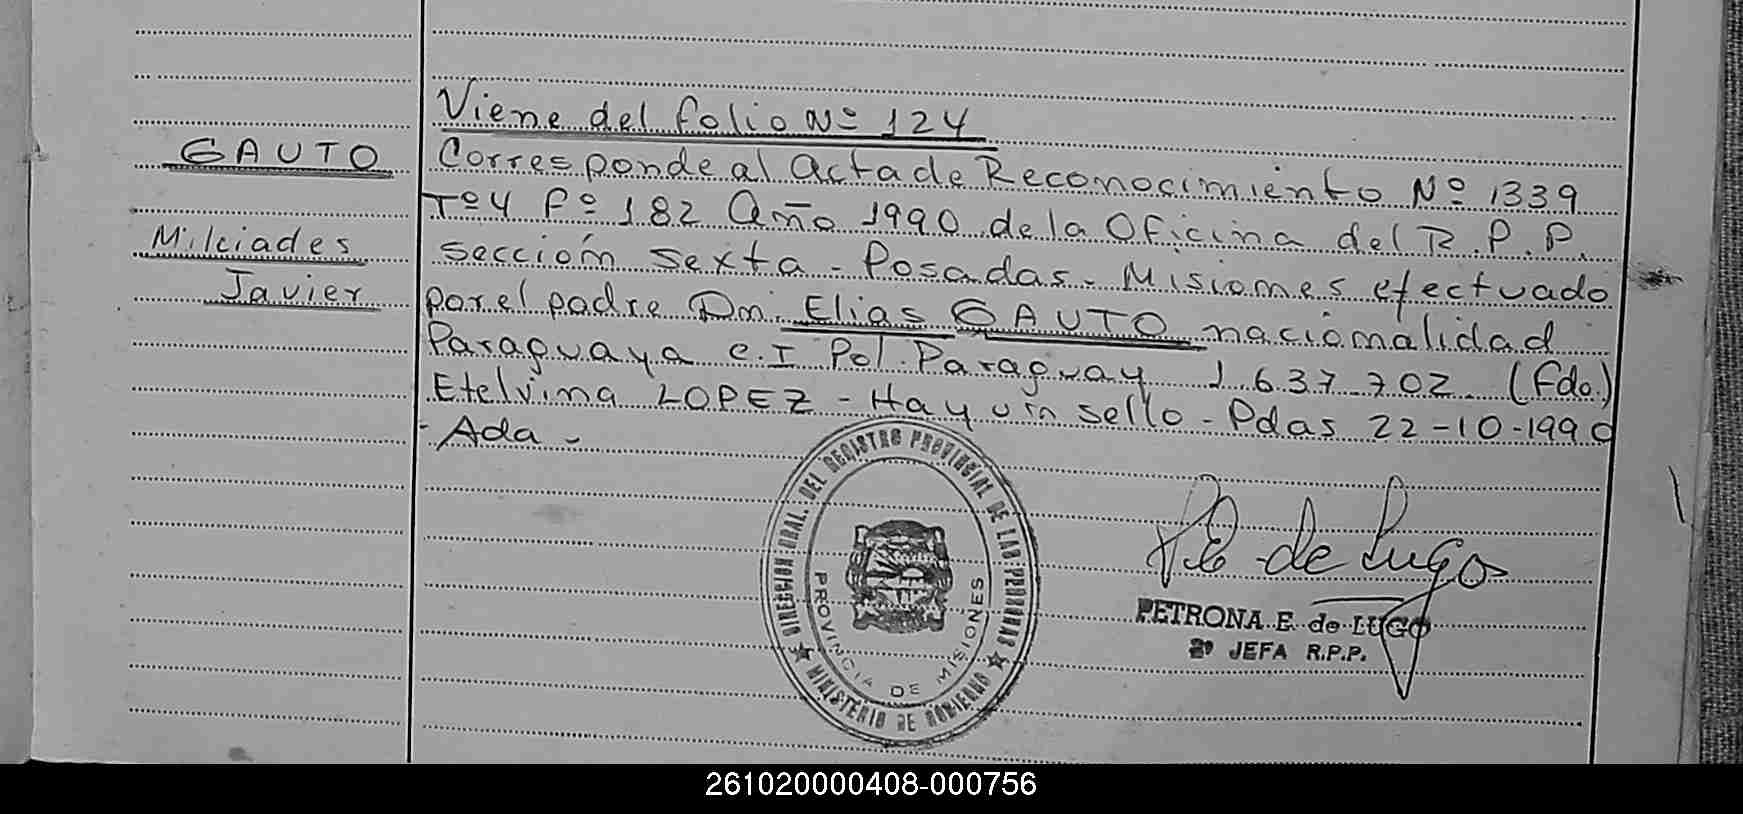 Viene del folio Nº 124
GAUTO
Corresponde al Acta de Reconocimiento Nº 1339
Tº 4 Fº 182 Año 1990 de la Oficina del R.P.P.
Milciades
sección sexta - Posadas - Misiones efectuado
Javier
por el padre Dn. Elias GAUTO nacionalidad
Paraguaya c.I Pol. Paraguay 1.637.702 (Fdo.)
Etelvina LOPEZ - Hay un sello - Pdas 22-10-1990
- Ada -
DIRECCION GRAL. DEL REGISTRO PROVINCIAL DE LAS PERSONAS
PROVINCIA DE MISIONES
MINISTERIO DE GOBIERNO
de Lugo
PETRONA E. de LUGO
2º JEFA R.P.P.
261020000408-000756